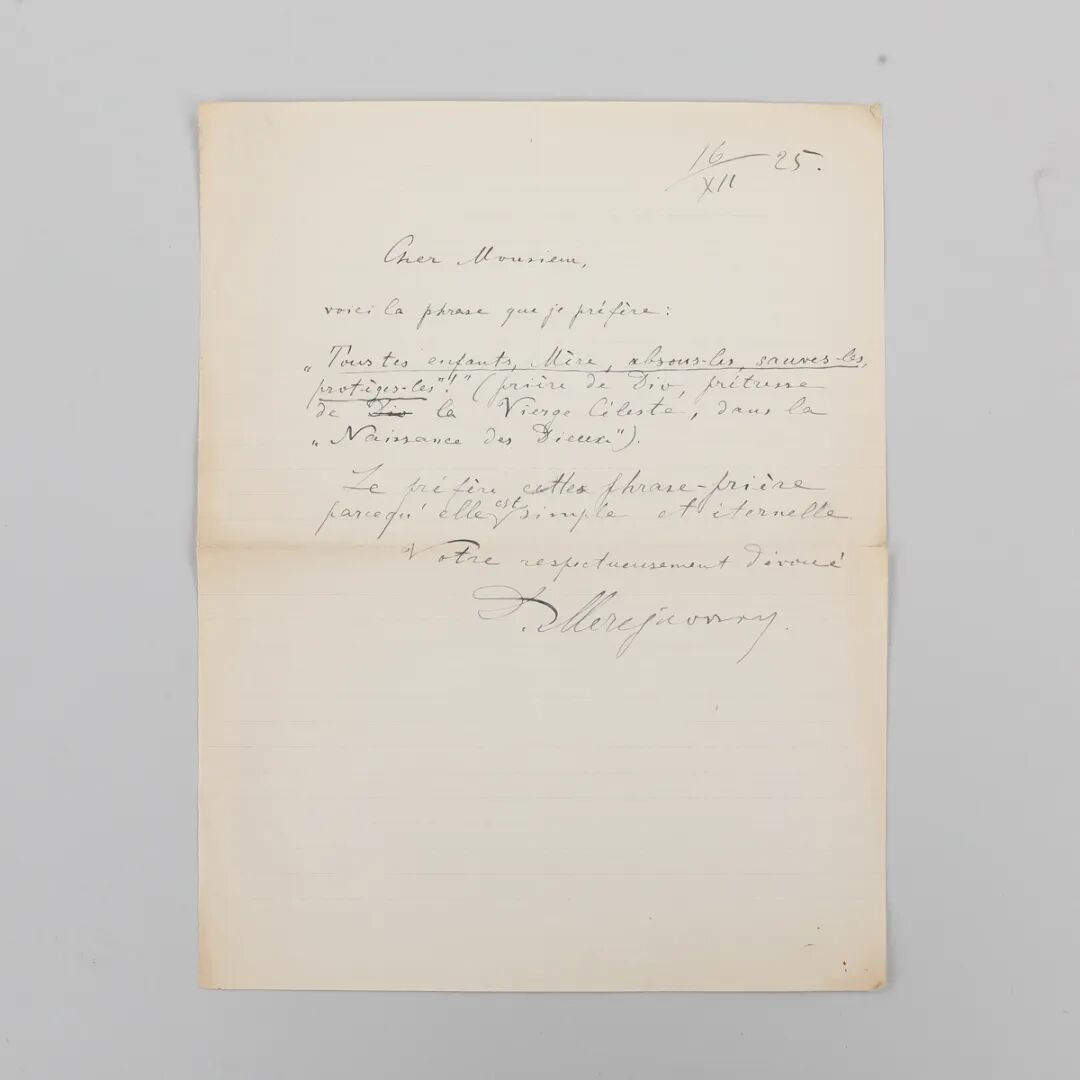 16/XII 25.
Cher Monsieur,
voici la phrase que je préfère:
„Tous tes enfants, Mère, absous-les, sauves-les,
protèges-les"!" (prière de Dio, prêtresse
de Dio la Vierge Céleste, dans la
„Naissance des Dieux").
Je préfère cette phrase-prière
parcequ'elle est simple et éternelle
Votre respectueusement dévoué
D. Merejkovsky.